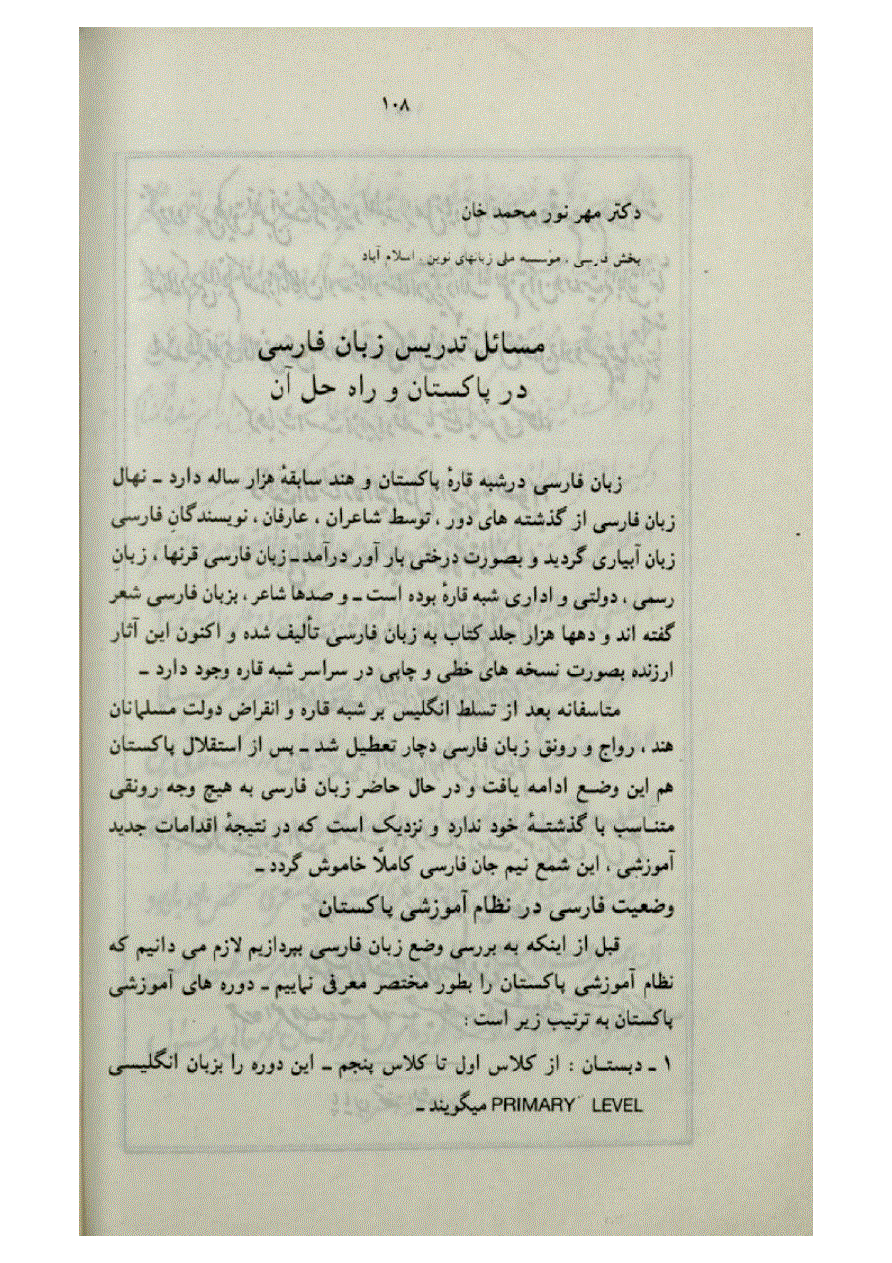 ۱۰۸
دکتر مهر نور محمد خان
بخش فارسی ، مؤسسه ملی زبانهای نوین ، اسلام آباد
مسائل تدریس زبان فارسی
در پاکستان و راه حل آن
زبان فارسی درشبه قارهٔ پاکستان و هند سابقهٔ هزار ساله دارد ـ نهال
زبان فارسی از گذشته های دور ، توسط شاعران ، عارفان ، نویسندگانِ فارسی
زبان آبیاری گردید و بصورت درختی بار آور درآمد ـ زبان فارسی قرنها ، زبانِ
رسمی ، دولتی و اداری شبه قارهٔ بوده است ـ و صدها شاعر ، بزبان فارسی شعر
گفته اند و دهها هزار جلد کتاب به زبان فارسی تألیف شده و اکنون این آثار
ارزنده بصورت نسخه های خطی و چاپی در سراسر شبه قاره وجود دارد ـ
متاسفانه بعد از تسلط انگلیس بر شبه قاره و انقراض دولت مسلمانان
هند ، رواج و رونق زبان فارسی دچار تعطیل شد ـ پس از استقلال پاکستان
هم این وضع ادامه یافت و در حال حاضر زبان فارسی به هیچ وجه رونقی
متناسب با گذشتهٔ خود ندارد و نزدیک است که در نتیجهٔ اقدامات جدید
آموزشی ، این شمع نیم جان فارسی کاملاً خاموش گردد ـ
وضعیت فارسی در نظام آموزشی پاکستان
قبل از اینکه به بررسی وضع زبان فارسی بپردازیم لازم می دانیم که
نظام آموزشی پاکستان را بطور مختصر معرفی نماییم ـ دوره های آموزشی
پاکستان به ترتیب زیر است :
۱ ـ دبستان : از کلاس اول تا کلاس پنجم ـ این دوره را بزبان انگلیسی
PRIMARY LEVEL میگویند ـ